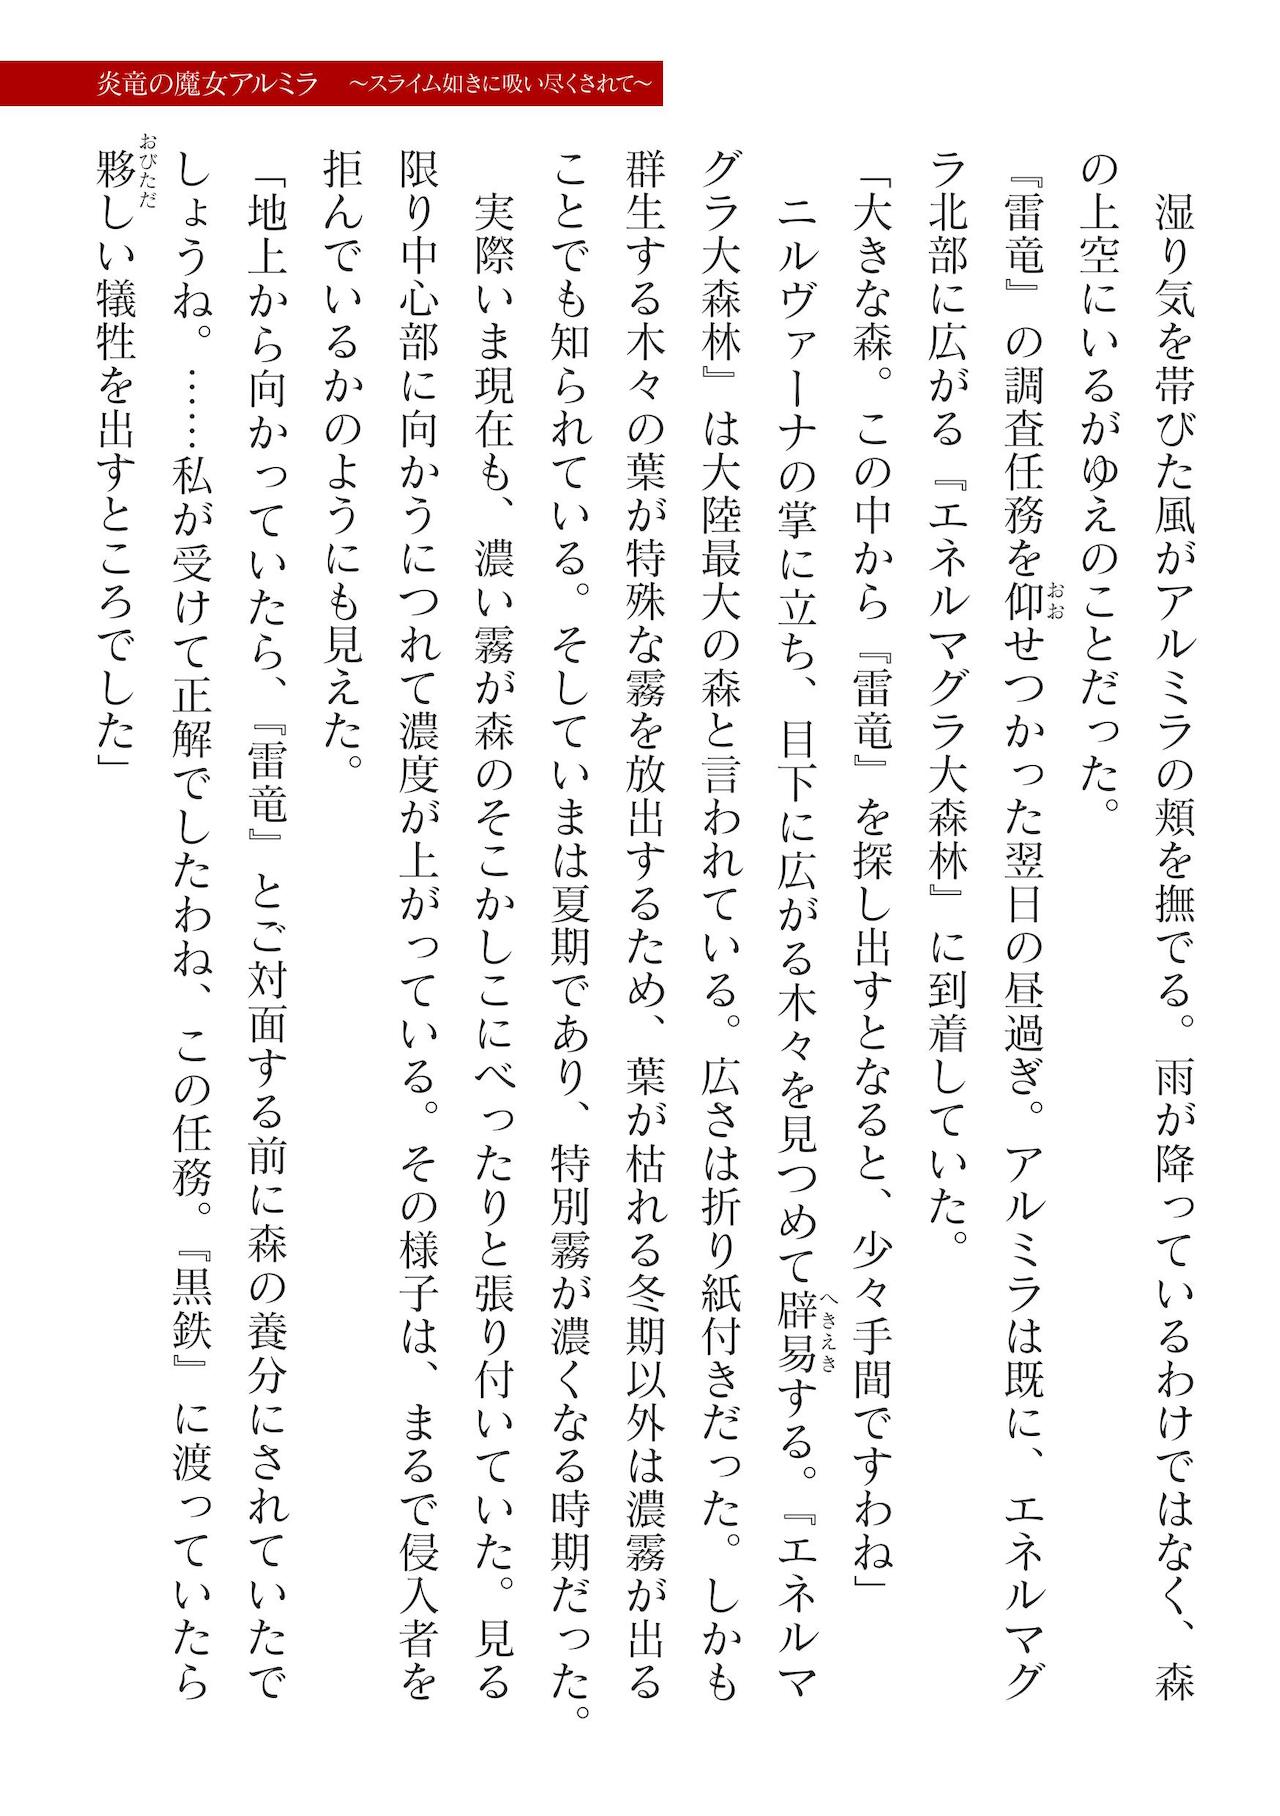 炎竜の魔女アルミラ　～スライム如きに吸い尽くされて～
　湿り気を帯びた風がアルミラの頬を撫でる。雨が降っているわけではなく、森
の上空にいるがゆえのことだった。
『雷竜』の調査任務を仰せつかった翌日の昼過ぎ。アルミラは既に、エネルマグ
おお
ラ北部に広がる『エネルマグラ大森林』に到着していた。
「大きな森。この中から『雷竜』を探し出すとなると、少々手間ですわね」
　ニルヴァーナの掌に立ち、目下に広がる木々を見つめて辟易する。『エネルマ
へきえき
グラ大森林』は大陸最大の森と言われている。広さは折り紙付きだった。しかも
群生する木々の葉が特殊な霧を放出するため、葉が枯れる冬期以外は濃霧が出る
ことでも知られている。そしていまは夏期であり、特別霧が濃くなる時期だった。
　実際いま現在も、濃い霧が森のそこかしこにべったりと張り付いていた。見る
限り中心部に向かうにつれて濃度が上がっている。その様子は、まるで侵入者を
拒んでいるかのようにも見えた。
「地上から向かっていたら、『雷竜』とご対面する前に森の養分にされていたで
しょうね。……私が受けて正解でしたわね、この任務。『黒鉄』に渡っていたら
夥しい犠牲を出すところでした」
おびただ